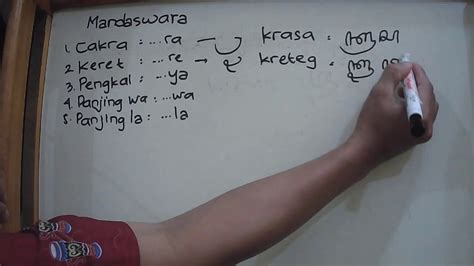 Mandaswara
1. Cakra : ...ra — ꦿ krasa : ꦏꦿꦱ
2 Keret : ...re → ꦽ kreteg : ꦏꦽ
3 Pengkal : ...ya
4 Panjing wa : ...wa
5. Panjing la : ...la